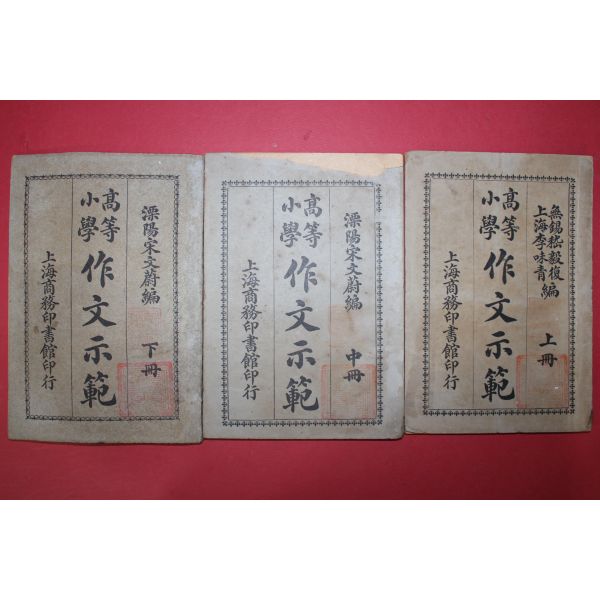 無錫嵇毅復
上海李味青
編
上冊
高等
小學
作文示範
上海商務印書館印行
溧陽宋文蔚編
中冊
高等
小學
作文示範
上海商務印書館印行
溧陽宋文蔚編
下冊
高等
小學
作文示範
上海商務印書館印行